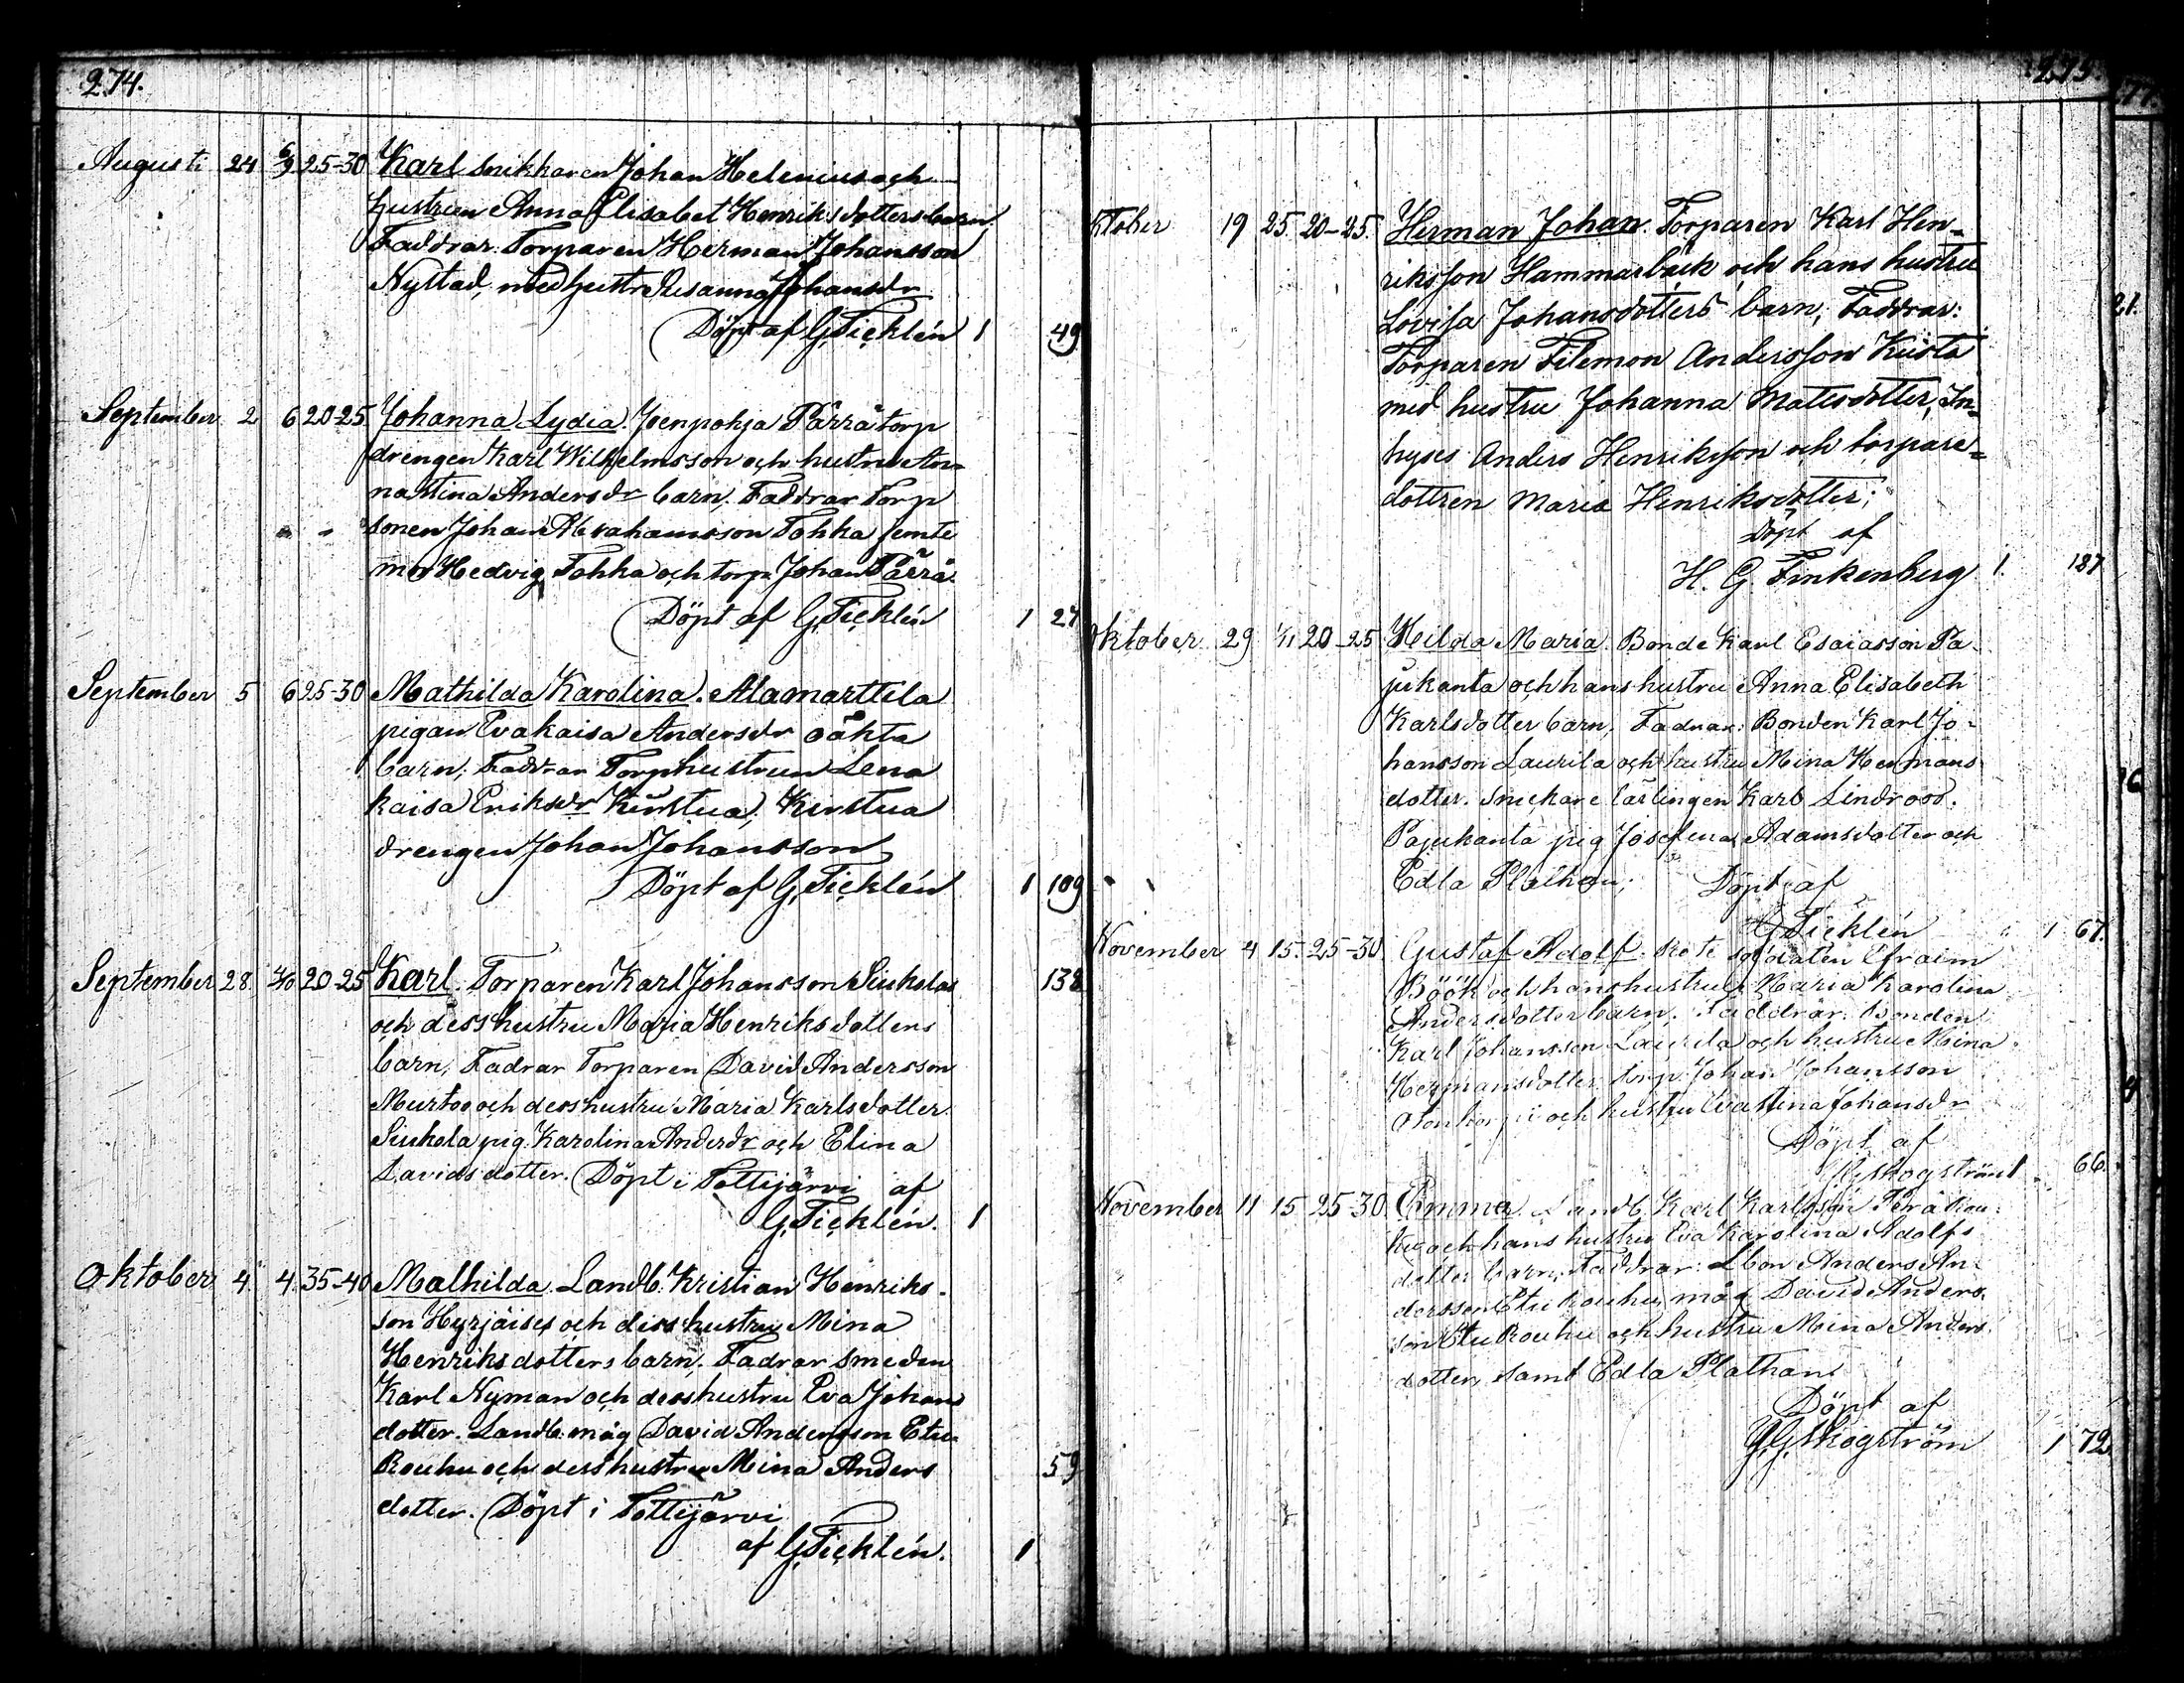 274.
Augusti 24 6/9 25-30 Karl Snikkaren Johan Helenius och
hustrun Anna Elisabet Henriksdotters barn.
Faddrar: Torparen Herman Johansson
Nystad, med hustr Susanna Johansdr
Döpt af G. Ticklén 1 49
September 2 6 20-25 Johanna Lydia. Joenpohja Pärrä torp
drengen Karl Wilhelmsson och hustru An=
nastina Andersdr barn. Faddrar Torp
sonen Johan Abrahamsson Tohka jemte
mor Hedvig Tohka och torp. Johan Pärrä.
Döpt af G. Ticklén 1 27
September 5 6 25-30 Mathilda Karolina. Alamarttila
pigan Evakaisa Andersdr oäkta
barn; Faddrar Torphustrun Lena
kaisa Eriksdr Kirstua, Kirstua
drengen Johan Johansson
Döpt af G. Ticklén 1 109
September 28 4/10 20-25 Karl. Torparen Karl Johansson Siukolas 138
och dess hustru Maria Henriksdotters
barn, Fadrar Torparen David Andersson
Murtoo och dess hustru Maria Karlsdotter.
Siukola pig. Karolina Andersdr och Elina
Davidsdotter. Döpt i Tottijärvi af
G. Ticklén. 1
Oktober 4 4 35-40 Mathilda Landb. Kristian Henriks-
son Hyrjäises och dess hustru Mina
Henriksdotters barn. Fadrar Smeden
Karl Nyman och dess hustru Eva Johans
dotter. Landb. måg David Andersson Etu-
Rouhu och dess hustru Mina Anders 59
dotter. Döpt i Tottijärvi
af G. Ticklén. 1
275.
ktober 19 25 20-25. Herman Johan. Torparen Karl Hen=
riksson Hammarbäck och hans hustru
Lovisa Johansdotters barn; Faddrar:
Torparen Filemon Andersson Kiista
med hustru Johanna Matsdotter, In=
hyses Anders Henriksson och torpare=
dottren Maria Henriksdotter;
Döpt af
H. G. Finkenberg 1. 187
Oktober 29 1/11 20-25 Hilda Maria. Bonde Karl Esaiasson Pa-
jukanta och hans hustru Anna Elisabeth
Karlsdotter barn, Fadrar: Bonden Karl Jo-
hansson Laurila och hustru Mina Hermans
dotter. Snickare lärlingen Karl Lindroos.
Pajukanta pig Josefina Adamsdotter och
Edla Plathan; Döpt af
G Ticklén 1 67.
November 4 15. 25-30. Gustaf Adolf. Rote soldaten Efraim
Böök och hans hustru Maria Karolina
Andersdotter barn. Faddrar: Bonden
Karl Johansson Laurila och hustru Mina
Hermansdotter torp. Johan Johansson
och hustru Evastina Johansdr
Döpt af
Skogström 1 66.
November 11 15 25-30 Emma. Landb. Karl Karlsson Perä Rou-
hu och hans hustru Eva Karolina Adolfs
dotter barn; Faddrar: Lbon Anders An-
dersson Etu Rouhu, måg David Anders-
son Etu Rouhu och hustru Mina Anders
dotter samt Edla Plathan.
Döpt af
Skogström 1 72
21.